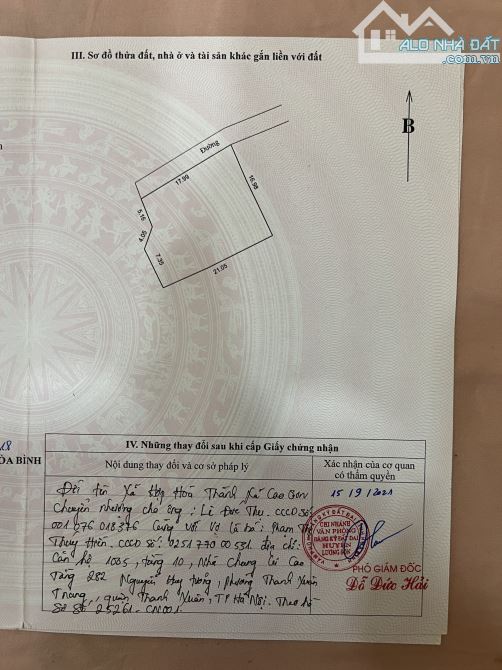 ALO NHÀ ĐẤT
.com.vn
III. Sơ đồ thửa đất, nhà ở và tài sản khác gắn liền với đất
B
Đường
17.99
16.98
5.16
4.05
7.35
21.05
ÒA BÌNH
IV. Những thay đổi sau khi cấp Giấy chứng nhận
Nội dung thay đổi và cơ sở pháp lý
Xác nhận của cơ quan
có thẩm quyền
Đổi tên xã Hợp Hoà Thành xã Cao Sơn
Chuyển nhượng cho ông: Lê Đức Thu. CCCD số:
001 276 018376 Cùng với vợ là bà: Phạm Thị
Thuý Hiền. CCCD số: 0251770 00531. địa chỉ:
Căn hộ 1005, tầng 10, Nhà Chung Cư Cao
Tầng 282 Nguyễn Huy Tưởng, phường Thanh Xuân
Trung, quận Thanh Xuân, TP Hà Nội. Theo hồ
Sơ số 25261. CN001
15/9/2021
CHI NHÁNH
VĂN PHÒNG
ĐĂNG KÝ ĐẤT ĐAI
HUYỆN
LƯƠNG SƠN
PHÓ GIÁM ĐỐC
Đỗ Đức Hải